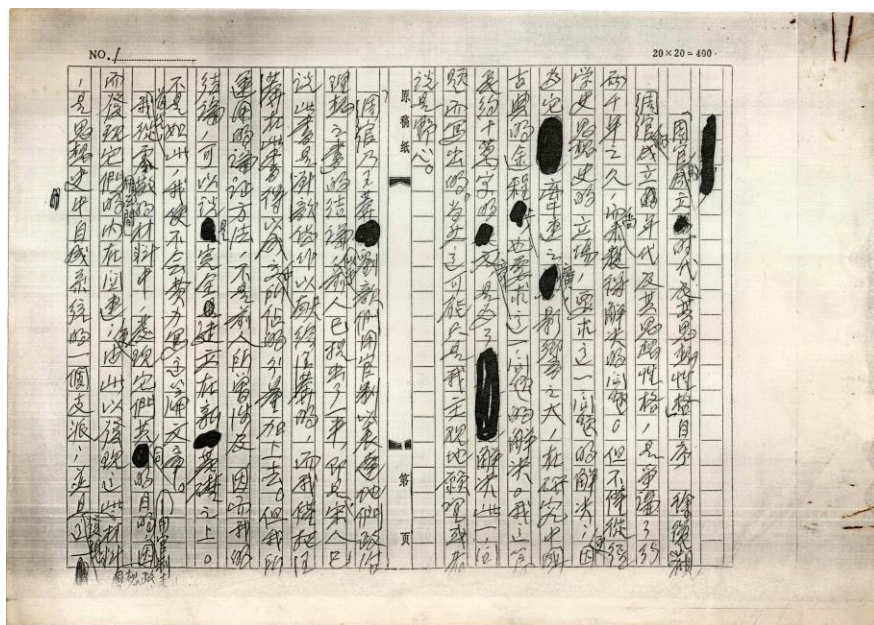 NO. 1
20×20=400
「周官成立的時代及其思想性格」自序 徐復觀
周官成立的年代及其思想性格，是爭論了約
兩千年之久，而尚未得解決的問題。但不僅從經
學史思想史的立場，要求這一問題的解決；因
為它牽連之廣，影響之大，在研究中國
古典的途程中，也要求這一問題的解決。我這篇
長約十萬字的文章，是為了解決此一問
題而寫出的。當然這可能只是我主觀地願望或者
說是野心。
原稿紙
第 頁
周官乃王莽劉歆們用官制以表達他們政治
理想之書的結論，前人已提出了一半，即是宋人已
說此書是劉歆偽作以獻給王莽的，而我僅把王
莽在此書得以成立所佔的分量加上去。但我所
運用的論證方法，不是前人所曾涉及，因而我的
結論，可以說是完全建立在新基礎之上。
不是如此，我便不會費力寫這篇文章。
我從零散的材料中，發現它們共同的目的，因
而發現它們的內在關連，便由此以發現這些材料
，是思想史中自成系統的一個支派；並且這一